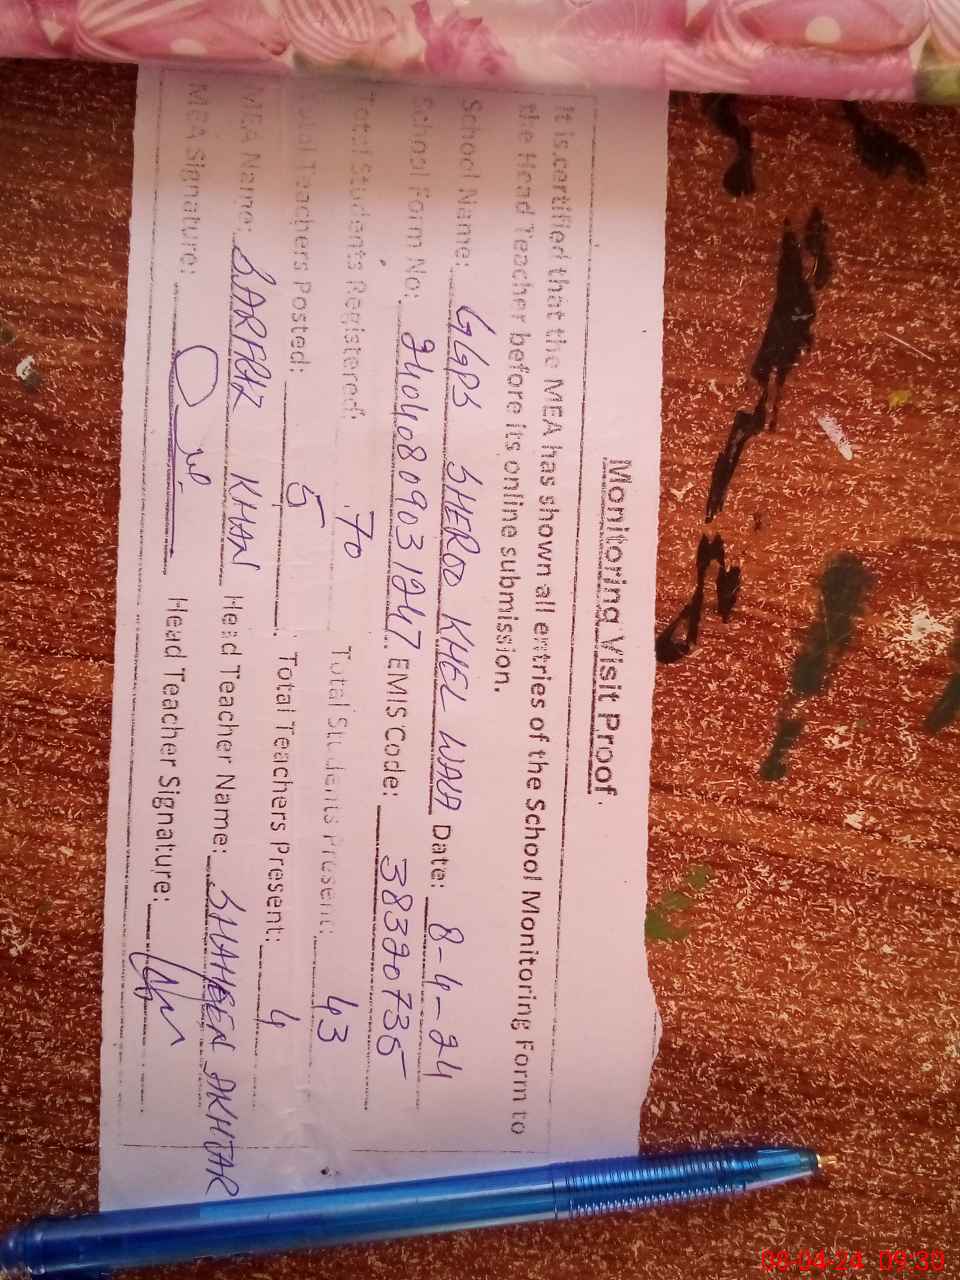 Monitoring Visit Proof.
It is certified that the MEA has shown all entries of the School Monitoring Form to
the Head Teacher before its online submission.
School Name: GGPS SHEROO KHEL WALA Date: 8-4-24
School Form No: 24040809031247. EMIS Code: 38320735
Total Students Registered: 70 Total Students Present: 43
Total Teachers Posted: 5 Total Teachers Present: 4
MEA Name: SARFRAZ KHAN Head Teacher Name: SHAHEEN AKHTAR
MEA Signature: Head Teacher Signature:
08-04-24 09:30